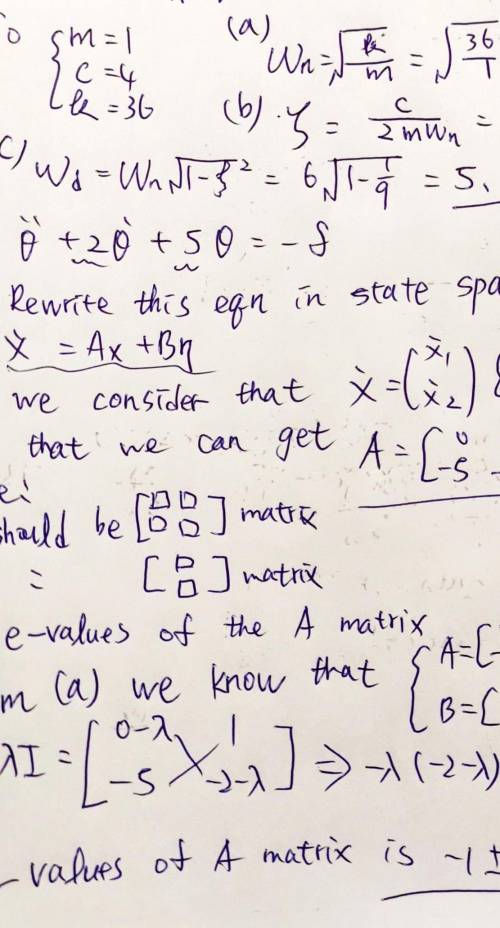 { m = 1
c = 4
k = 36
(a) Wn = √k/m = √36/1
(b) ζ = c/2mWn =
c) Wd = Wn√1-ζ² = 6√1-1/9 = 5.
θ̈ + 2θ̇ + 5θ = -δ
Rewrite this eqn in state spa
Ẋ = Ax + Bη
we consider that Ẋ = (ẋ1 ẋ2)
that we can get A = [0 -5
should be [□□ □□] matrix
= [□ □] matrix
e-values of the A matrix
m (a) we know that { A=[-
B=[
λI = [0-λ 1 -5 -2-λ] ⇒ -λ(-2-λ)
-values of A matrix is -1 ±